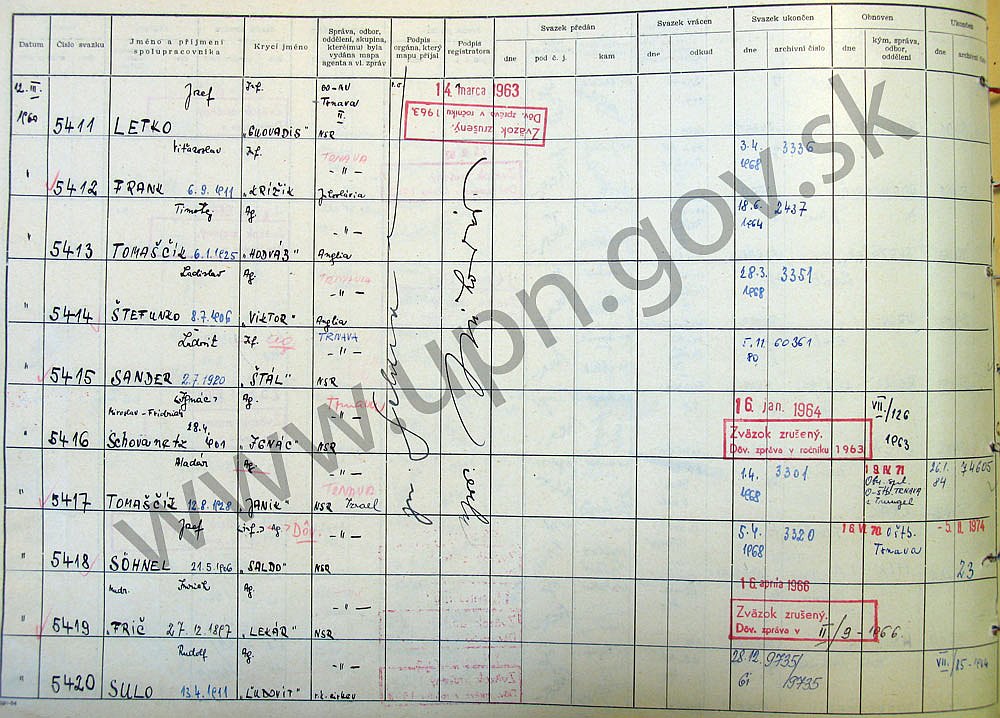 Datum
Číslo svazku
Jméno a příjmení spolupracovníka
Krycí jméno
Správa, odbor, oddělení, skupina, kterému byla vydána mapa agenta a vl. zpráv
Podpis orgána, který mapu přijal
Podpis registratora
Svazek předán
dne
pod č. j.
kam
Svazek vrácen
dne
odkud
Svazek ukončen
dne
archivní číslo
Obnoven
dne
kým, správa, odbor, oddělení
Ukončen
dne
12. III. 1960
5411
Jozef
LETKO
Inf.
"QUOVADIS"
Trnava
II.
NSR
14. marca 1963
Zväzok zrušený.
Dôv. zpráva v ročníku 1963.
"
5412
Víťazoslav
FRANK 6.9.1911
Inf.
"KRÍŽIK"
TRNAVA
- " -
3.4. 1968
3336
"
5413
Timotej
TOMAŠČÍK 6.1.1925
Ag.
"HODVÁB"
- " -
Anglia
18.6. 1964
2437
"
5414
Ladislav
ŠTEFUNKO 8.7.1906
Ag.
"VIKTOR"
TRNAVA
- " -
Anglia
28.3. 1968
3351
"
5415
Ľudovít
SANDER 2.7.1920
"ŠTÁL"
TRNAVA
- " -
NSR
5.11. 80
60361
"
5416
Ignác
Miroslav - Fridrich
Schovanetz 28.4. 1901
Ag.
"IGNÁC"
Trnava
- " -
NSR
16. jan. 1964
Zväzok zrušený.
Dôv. zpráva v ročníku 1963
VII./126
1963
"
5417
Aladár
TOMAŠČÍK 12.8.1928
Ag.
"JANIK"
- " -
TRNAVA
NSR Izrael
1.4. 1968
3301
19. IV. 71
TRNAVA
26.1. 84
74605
"
5418
Jozef
SÖHNEL 21.5.1906
Ag. Dôv.
"SALDO"
- " -
NSR
5.4. 1968
3320
16. VI. 70
Trnava
-5. II. 1974
23
"
5419
Mudr.
FRIČ 27.12.1897
Ag.
"LEKÁR"
- " -
NSR
16. apríla 1966
Zväzok zrušený.
Dôv. zpráva v II/9-1966
"
5420
Rudolf
SULO 13.4.1911
Ag.
"ĽUDOVIT"
- " -
r.k. cirkev
28.12. 61
9735/
/9735
www.upn.gov.sk